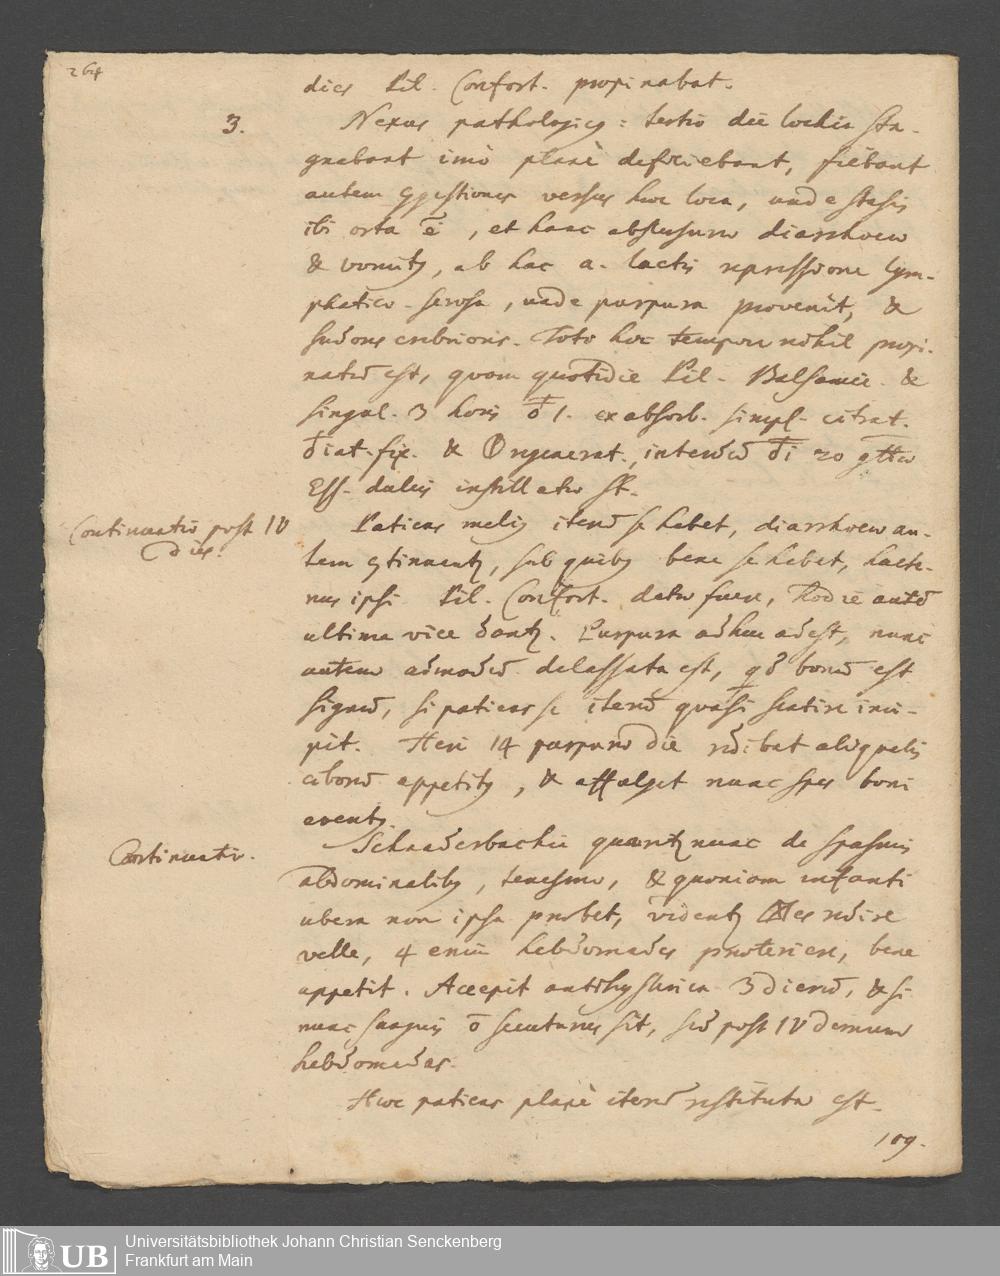 264
dies Pil. Confort. propinabat.
3. Nexus pathologicus: tertio die lochia sta-
gnabant imò planè deficiebant, fiebant
autem congestiones versus huc loca, unde stasis
ibi orta ē, et hanc abstersuram diarrhoeam
& vomitus, ab hac a. lactis repressione lym-
phatico-serosa, unde purpura provenit, &
sudores crebriores. Toto hoc tempore nihil propi-
natum est, quam quotidie Pil. Balsamic. &
singul. 3 horis 1. ex absorb. simpl. citrat.
diat. fix. & regenerat., interdum 20 gtt
Ess. dulcis instillatum
Continuatio post IV
dies.
Patiens melius iterum se habet, diarrhoea au-
tem continuante, sub quibus bene se habet, hacte-
nus ipsi Pil. Confort. datae fuere, Hodie autem
ultima vice dantur. Purpura adhuc adest, nunc
autem admodum delassata est, quod bonum est
signum, si patiens se iterum quasi sentire inci-
pit. Heri 14 purpurae die redibat aliqualis
ciborum appetitus, & affulget nunc spes boni
eventus.
Continuatio.
Schnaderbachii queritur nunc de spasmis
abdominalibus, tenesmo, & quoniam infanti
ubera non ipsa praebet, videntur redire
velle, 4 enim hebdomades praeteriere, bene
appetit. Accepit antihysterica 3 dierum, & si
nunc sanguis secuturus sit, sed post IV demum
hebdomadas.
Haec patiens planè iterum restituta est.
109.
Universitätsbibliothek Johann Christian Senckenberg
Frankfurt am Main
UB